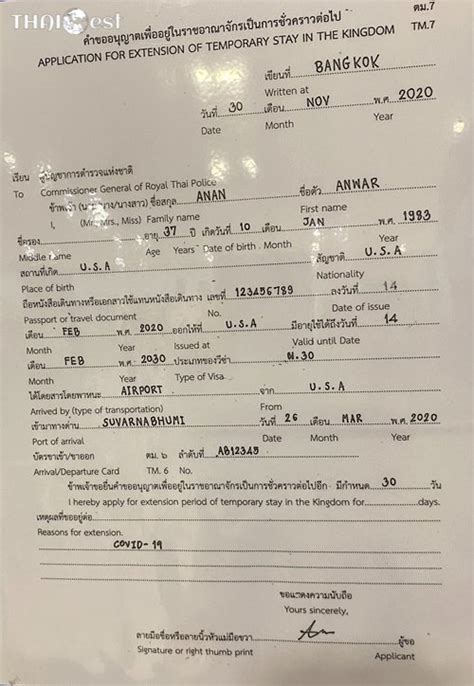 THAIest
ตม.7
คำขออนุญาตเพื่ออยู่ในราชอาณาจักรเป็นการชั่วคราวต่อไป
APPLICATION FOR EXTENSION OF TEMPORARY STAY IN THE KINGDOM TM.7
เขียนที่ BANGKOK
Written at
วันที่ 30 เดือน NOV พ.ศ. 2020
Date Month Year
เรียน ผู้บัญชาการตำรวจแห่งชาติ
To Commissioner General of Royal Thai Police
ข้าพเจ้า (นาย/นาง/นางสาว) ชื่อสกุล ANAN ชื่อตัว ANWAR
I, (Mr., Mrs., Miss) Family name First name
ชื่อรอง อายุ 37 ปี เกิดวันที่ 10 เดือน JAN พ.ศ. 1983
Middle name Age Years Date of birth Month Year
สถานที่เกิด U.S.A สัญชาติ U.S.A
Place of birth Nationality
ถือหนังสือเดินทางหรือเอกสารใช้แทนหนังสือเดินทาง เลขที่ 123456789 ลงวันที่ 14
Passport or travel document No. Date of issue
เดือน FEB พ.ศ. 2020 ออกให้ที่ U.S.A มีอายุใช้ได้ถึงวันที่ 14
Month Year Issued at Valid until Date
เดือน FEB พ.ศ. 2030 ประเภทของวีซ่า ผ.30
Month Year Type of Visa
ได้โดยสารโดยพาหนะ AIRPORT จาก U.S.A
Arrived by (type of transportation) From
เข้ามาทางด่าน SUVARNABHUMI วันที่ 26 เดือน MAR พ.ศ. 2020
Port of arrival Date Month Year
บัตรขาเข้า/ขาออก ตม. ๖ ลำดับที่ AB12345
Arrival/Departure Card TM. 6 No.
ข้าพเจ้าขอยื่นคำขออนุญาตเพื่ออยู่ในราชอาณาจักรเป็นการชั่วคราวต่อไปอีก มีกำหนด 30 วัน
I hereby apply for extension period of temporary stay in the Kingdom for days.
เหตุผลที่ขออยู่ต่อ
Reasons for extension.
COVID-19
ขอแสดงความนับถือ
Yours sincerely,
ลายมือชื่อหรือลายนิ้วหัวแม่มือขวา ผู้ขอ
Signature or right thumb print Applicant